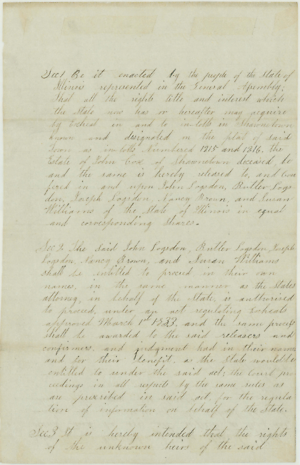 Sec 1 Be it enacted by the people of the State of
Illinois represented in the General Assembly;
That all the rights title and interest which
the State now has or hereafter may acquire
by Escheat in and to in lots in Shawneetown
known and designated on the plat of said
Town as in lots Numbered 1215 and 1216, the
Estate of John Cox, of Shawneetown deceased be
and the same is hereby released to, and con
firmed in and upon John Logsdon, Butler Logs
don, Joseph Logsdon, Nancy Brown, and Susan
Williams of the State of Illinois in equal
and corresponding shares.
Sec 2. The said John Logsdon, Butler Logsdon Joseph
Logsdon, Nancy Brown, and Susan Williams
shall be entitled to proceed in their own
names, in the same manner as the States
attorney, in behalf of the State, is authorised
to proceed, under an act regulating Escheats
approved March 1st 1833, and the same proceeds
shall be awarded to the said releasees and
confirmees, and judgment had in their names
and for their benefit, as the State would be
entitled to under the said act; the Court pro
ceedings in all respects by the same rules as
are prescribed in said act for the regula
tions of information on behalf of the State.
Sec 3 It is hereby intended that the rights
of the unknown heirs of the said